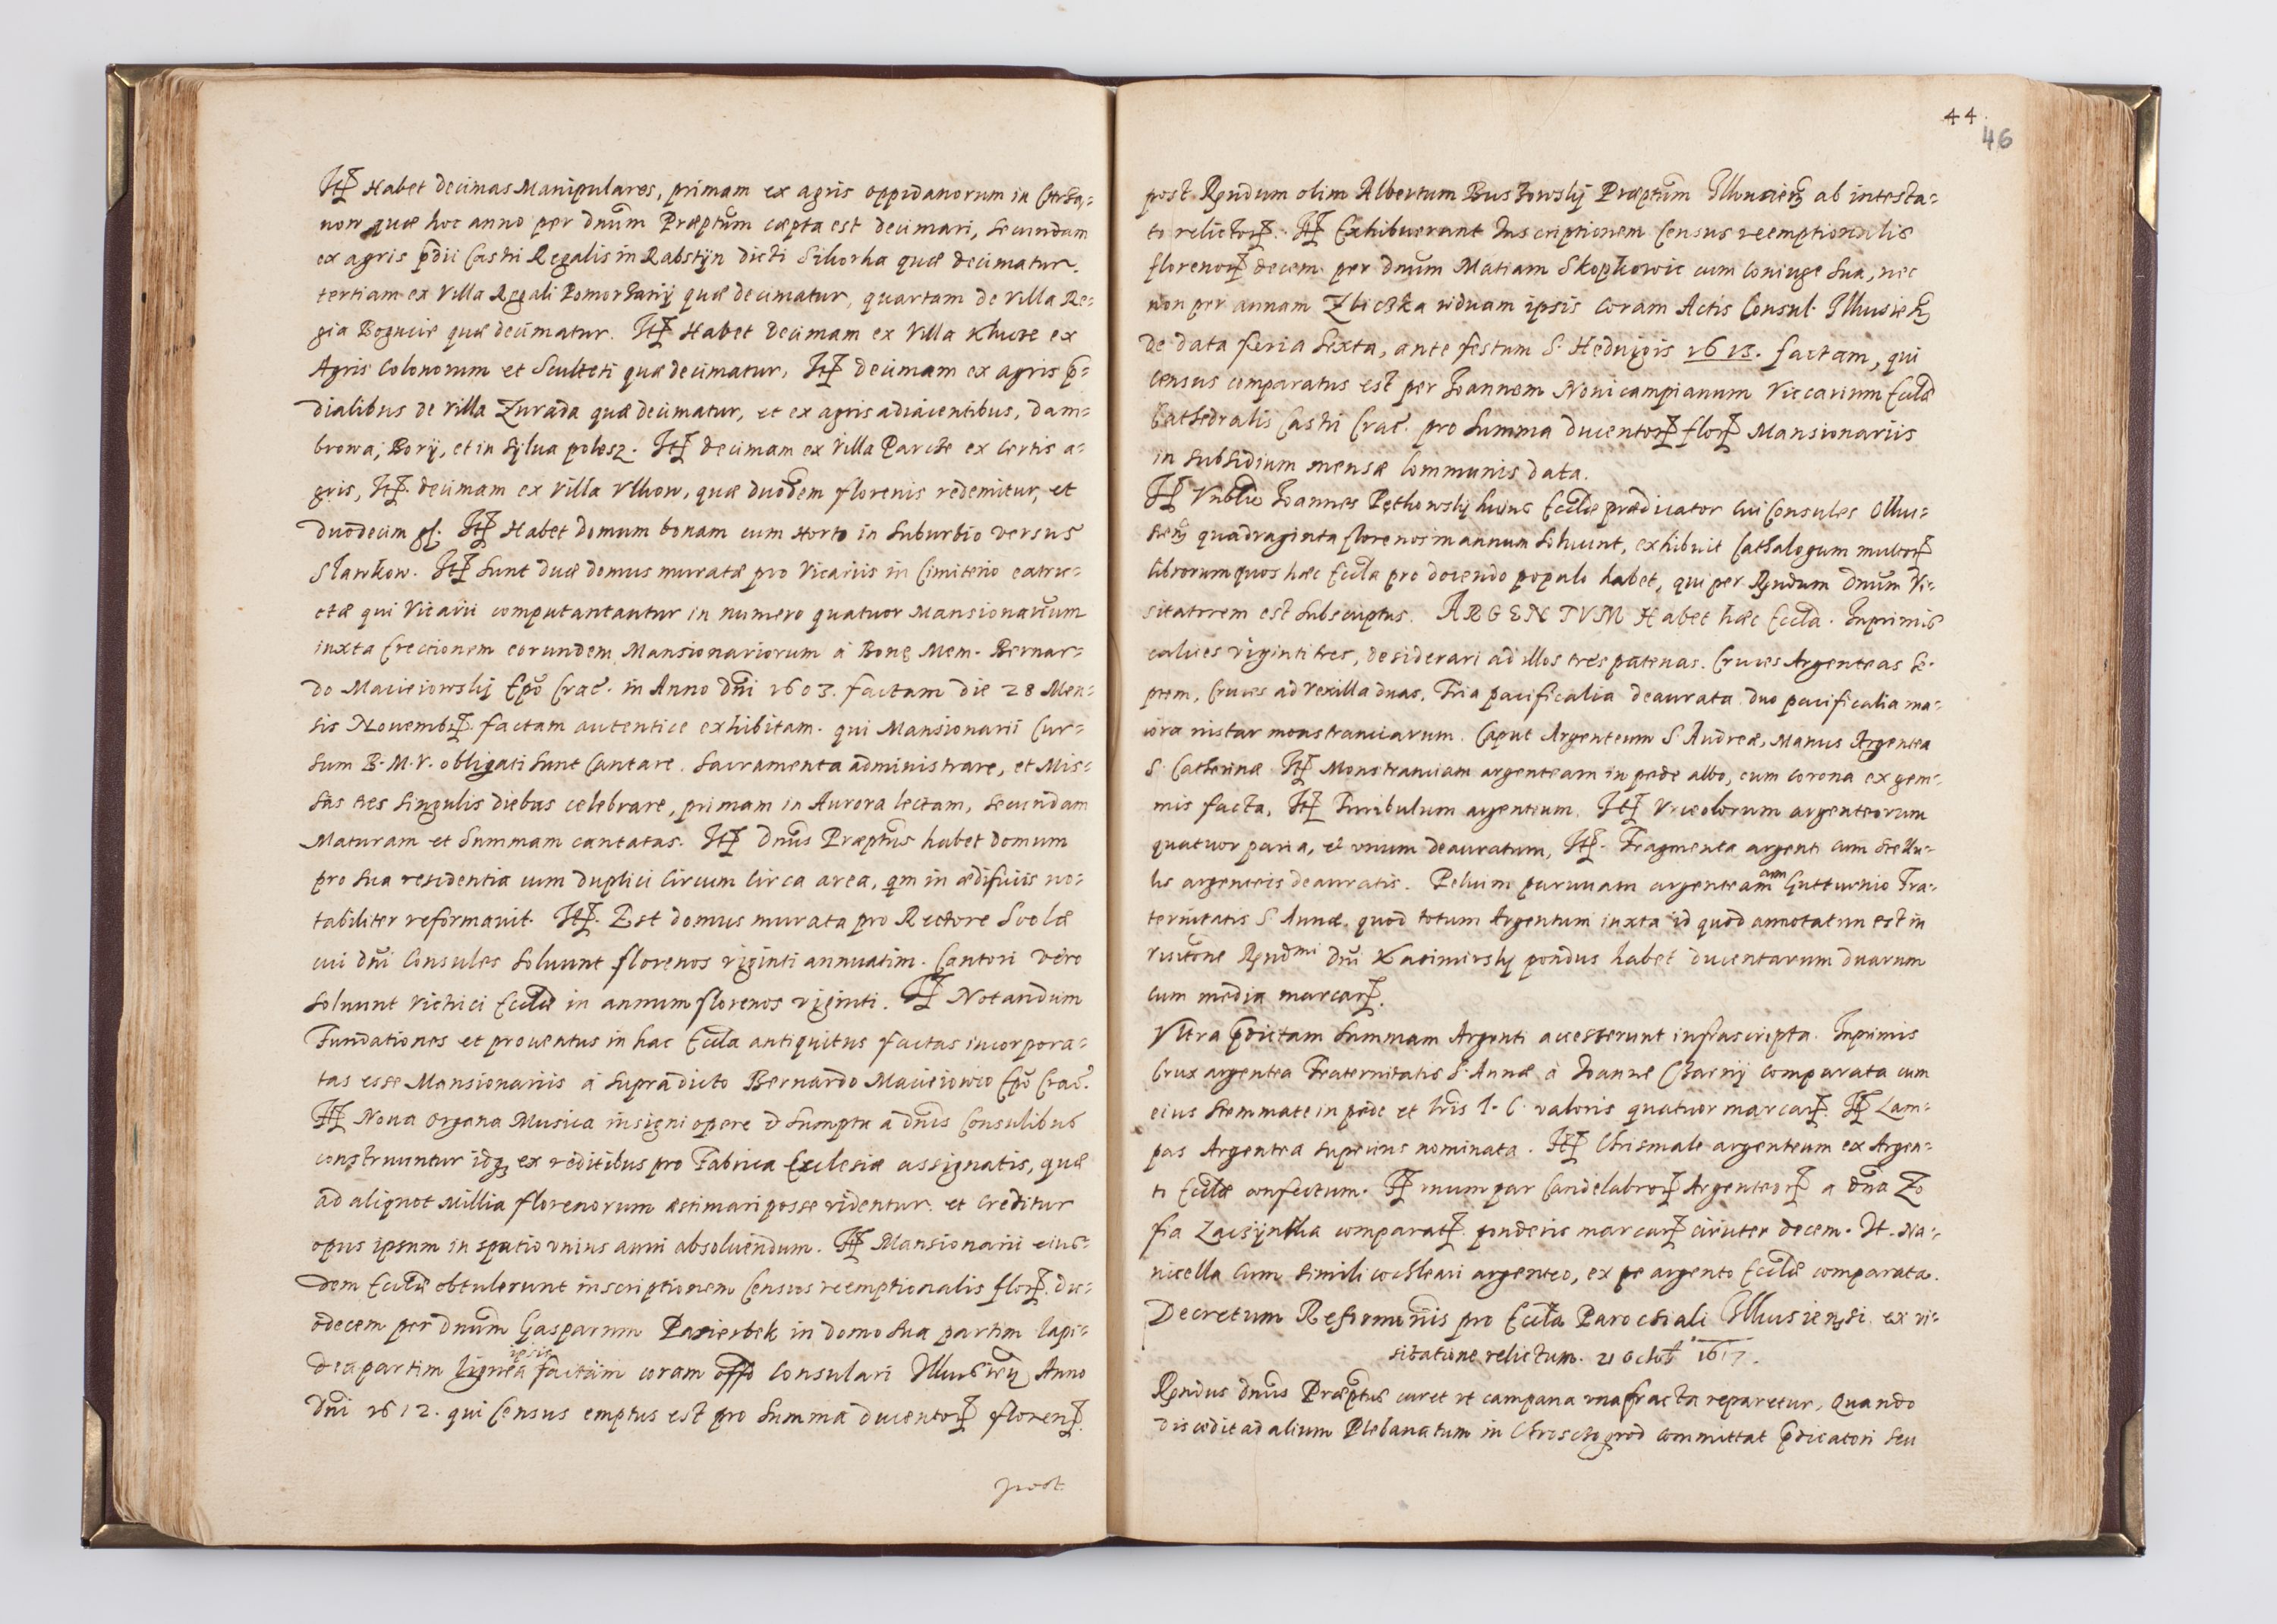 Itē Habet decimas Manipulares, primam ex agris oppidanorum in
non quæ hoc anno per dnūm Præptūm cæpta est decimari, secundam
ex agris p̄dii Castri Regalis in Rabstijn dicti Sikorka quæ decimatur.
tertiam ex Villa Regali Pomorzanij quæ decimatur, quartam de villa Re=
gia Bogucie quæ decimatur. Itē Habet decimam ex Villa Kluce ex
Agris Colonorum et Sculteti quæ decimatur, Itē decimam ex agris p̄=
dialibus de villa Zurada quæ decimatur, et ex agris adiacentibus, dam=
browa, Borij, et in sylva polesz. Itē decimam ex villa Parcze ex certis a=
gris, Itē. decimam ex villa Vlkow, quæ duodem florenis redemitur, et
duodecim gſ. Itē Habet domum bonam cum Horto in suburbio versus
Slawkow. Itē Sunt duæ domus muratæ pro Vicariis in Cimiterio extru=
ctæ qui Vicarii computantantur in numero quatuor Mansionariūm
iuxta Erectionem eorundem Mansionariorum à Bonę Mem. Bernar=
do Macieiowskj Epō Crac̄. in Anno dn̄i 1603. factam die 28 Men=
sis Novembr̄. factam autentice exhibitam. qui Mansionarii Cur=
sum B. M. V. obligati sunt Cantare. Sacramenta administrare, et Mis=
sas tres singulis diebus celebrare, primam in Aurora lectam, secundam
Maturam et Summam cantatas. Itē dnūs Præptūs habet domum
pro sua residentia cum duplici circum circa area, qm̄ in ædificiis no=
tabiliter reformavit. Itē. Est domus murata pro Rectore Scolæ
cui dn̄i Consules solvunt florenos viginti annuatim. Cantori vero
solvunt Vitrici Eccłæ in annum florenos viginti. Itē Notandum
Fundationes et proventus in hac Eccła antiquitus factas incorpora=
tas esse Mansionariis à supradicto Bernardo Macieiowio Epō Crac̄.
Itē Nova Organa Musica insigni opere & sumptu à dnīs Consulibus
construuntur idq̨ ex reditibus pro Fabrica Ecclesiæ assignatis, quæ
ad aliquot Millia florenorum æstimari posse videntur. et creditur
opus ipsum in spatio vnius anni absolvendum. Itē Mansionarii eius=
dem Eccłæ obtulerunt inscriptionem Census reemptionalis flor̄. du=
odecem per dnūm Gasparum Pasierbek in domo sua partim lapi=
dea partim lignea ipsis factam coram offo Consulari Illkusieņ Anno
dn̄i 1612. qui Census emptus est pro Summa ducentor̄ floren̄.
post
44.
46
post Rndum olim Albertum Buskowskij Præptūm Illkusień ab intesta=
to relictor̄. Itē Exhibuerunt Inscriptionem Census reemptionalis
florenor̄ decem per dnūm Matiam Skopkowic cum Coniuge sua, nec
non per Annam Zbiczka viduam ipsis coram Actis Consul. Illkusień
de data feria sexta, ante festum S. Hedvigis 1613. factam, qui
census comparatus est per Joannem Novicampianum Viccarium Eccłæ
Cathedralis Castri Crac̄. pro Summa ducentor̄ flor̄ Mansionariis
in subsidium mensæ Communis data.
Itē Vnblis Joannes Pętkowskij huius Eccłæ prædicator cui Consules Olku=
sień quadraginta florenos in annum solvunt, exhibuit Cathalogum multor̄
librorum quos hæc Eccła pro docendo populo habet, qui per Rndum dnūm Vi=
sitatorem est subscriptus. ARGENTVM Habet hæc Eccła. Inprimis
calices viginti tres, desiderari ad illos tres patenas. Cruces Argenteas Se=
ptem, Cruces ad vexilla duas, Tria pacificalia deaurata duo pacificalia ma=
iora instar monstranciarum. Caput Argenteum S Andreæ, Manus Argentea
S. Catherinæ Itē Monstranciam argenteam in pede albo, cum corona ex gem=
mis facta, Itē Turibulum argenteum. Itē Vrceolorum argenteorum
quatuor paria, et vnum deauratum, Itē. Fragmenta argenti cum stellu=
lis argenteis deauratis. Pelvim parvam argenteam cum Gutturnio Fra=
ternitatis S Annæ, quod totum Argentum iuxta id quod annotatum est in
visitōne Rndmi dn̄i Kazimirskj pondus habet ducentarum duarum
cum media marcar̄.
Vltra p̄dictam Summam Argenti accesserunt infrascripta. Inprimis
Crux argentea Fraternitatis S. Annæ à Joanne Czarnij comparata cum
eius stemmate in pede et lrīs I. C. valoris quatuor marcar̄. Itē Lam=
pas Argentea superius nominata. Itē Chrismale argenteum ex Argen=
to Eccłæ confectum. Itē vnum par Candelabror̄ Argenteor̄ a dn̄a Zo
fia comparat̄. ponderis marcar̄ circiter decem. It. Na=
vicella cum simili cochleari argenteo, ex argento Eccłæ comparata.
Decretum Reformōnis pro Eccła Parochiali Illkusiensi ex vi=
sitatione relictum. 21 Octob̄ 1617.
Rndus dnūs Præptūs curet vt campana vna fracta reparetur, Quando
discedit ad alium Plebanatum in committat p̄dicatori seu